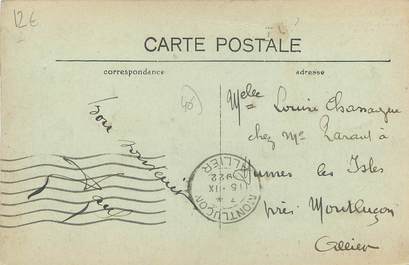 12€
CARTE POSTALE
correspondance
adresse
(40)
Melle Louise Chassagne
chez Mr
Bon Souvenir
les Isles
près Montluçon
Allier
MONTLUÇON
ALLIER
15 - IX
922